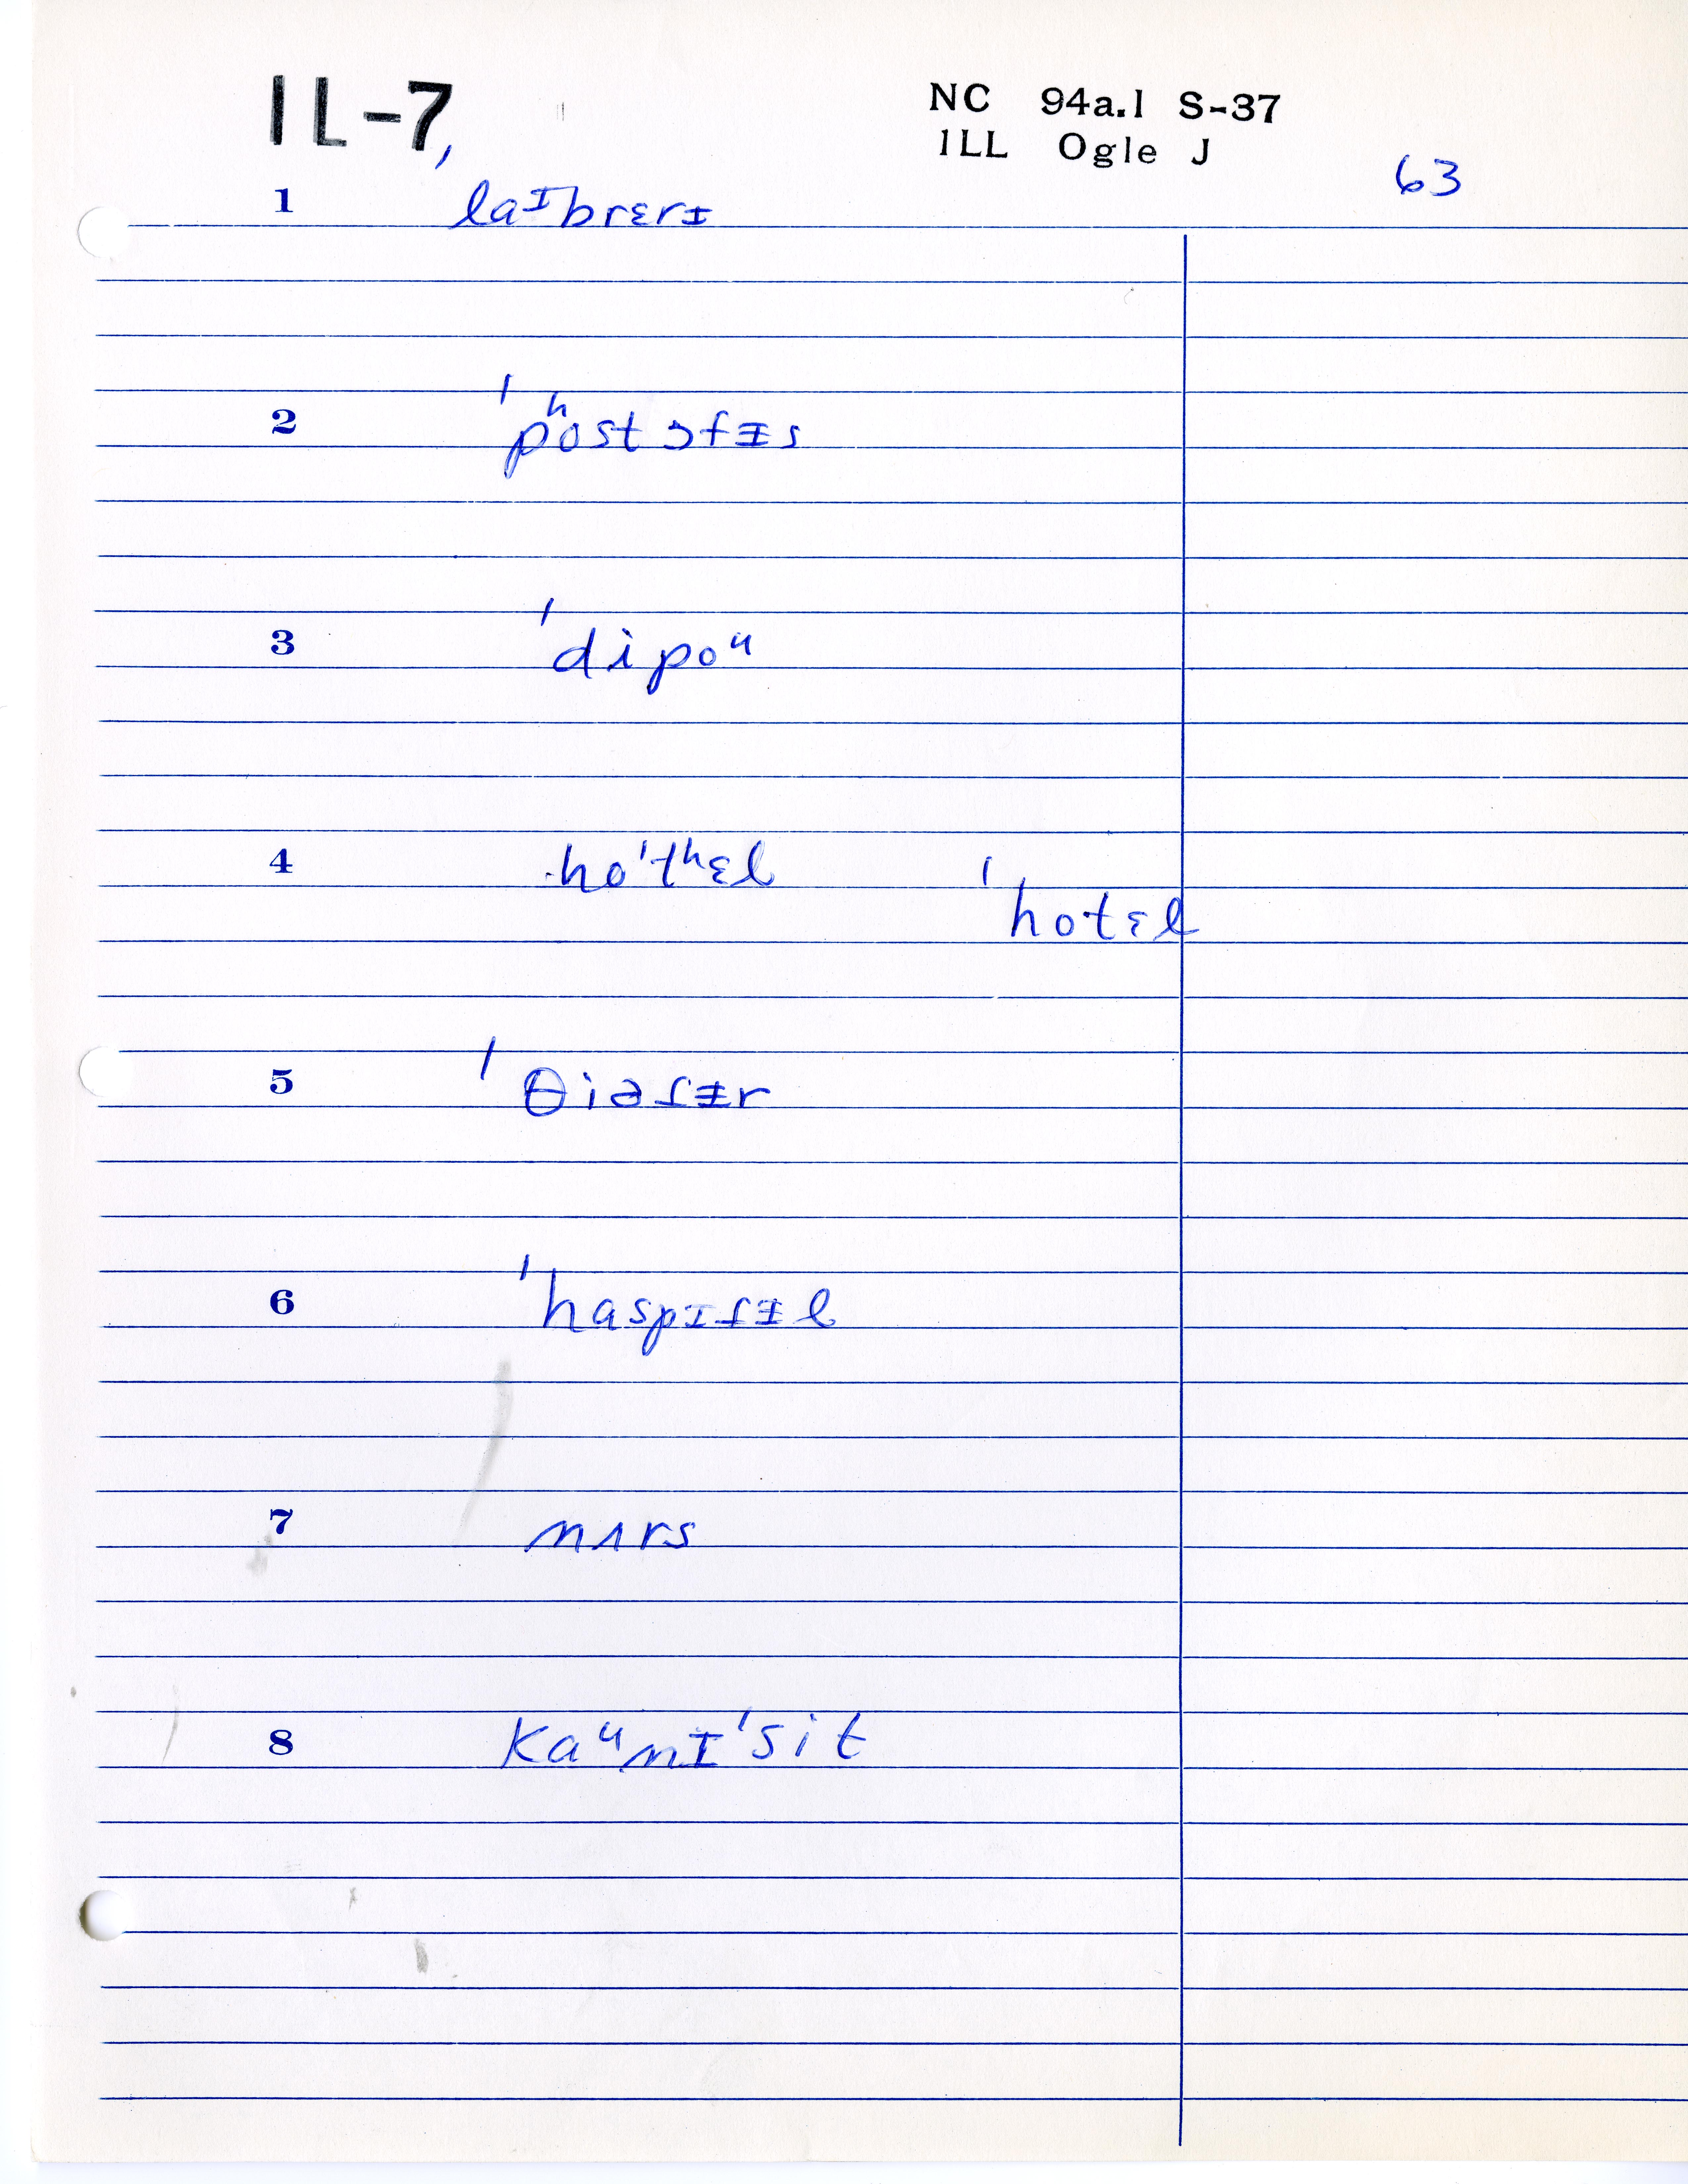 IL-7
NC 94a.1 S-37
ILL Ogle J
63
1 ˈlaᶦbrɛrɪ
2 ˈpʰostɔfᵻs
3 ˈdipoᵘ
4 hoˈtʰɛl ˈhotɛl
5 ˈθiəɾᵻr
6 ˈhaspɪɾᵻl
7 nʌrs
8 kaᵘnɪˈsit